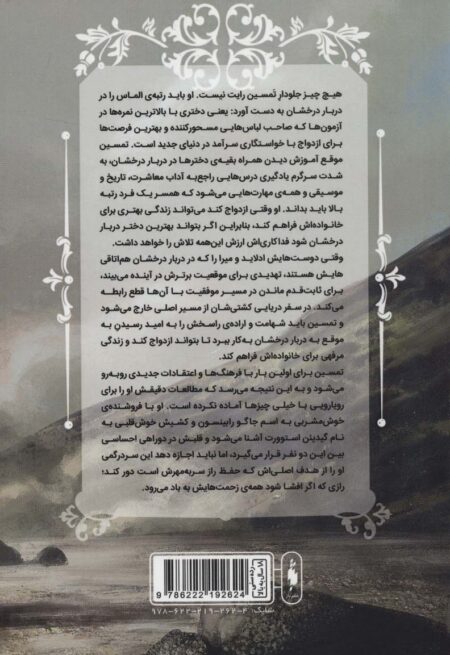 هیچ چیز جلودارِ تَمسین رایت نیست. او باید رتبه‌ی الماس را در
دربار درخشان به دست آورد: یعنی دختری با بالاترین نمره‌ها در
آزمون‌ها که صاحب لباس‌هایی مسحورکننده و بهترین فرصت‌ها
برای ازدواج با خواستگاری سرآمد در دنیای جدید است. تمسین
موقع آموزش دیدن همراه بقیه‌ی دخترها در دربار درخشان، به
شدت سرگرم یادگیری درس‌هایی راجع‌به آداب معاشرت، تاریخ و
موسیقی و همه‌ی مهارت‌هایی می‌شود که همسر یک فرد رتبه
بالا باید بداند. او وقتی ازدواج کند می‌تواند زندگی بهتری برای
خانواده‌اش فراهم کند، بنابراین اگر بتواند بهترین دختر دربار
درخشان شود فداکاری‌اش ارزش این‌همه تلاش را خواهد داشت.
وقتی دوست‌هایش ادلاید و میرا را که در دربار درخشان هم‌اتاقی
هایش هستند، تهدیدی برای موقعیت برترش در آینده می‌بیند،
برای ثابت‌قدم ماندن در مسیر موفقیت با آن‌ها قطع رابطه
می‌کند. در سفر دریایی کشتی‌شان از مسیر اصلی خارج می‌شود
و تمسین باید شهامت و اراده‌ی راسخش را به امید رسیدن به
موقع به دربار درخشان به‌کار ببرد تا بتواند ازدواج کند و زندگی
مرفهی برای خانواده‌اش فراهم کند.
تمسین برای اولین بار با فرهنگ‌ها و اعتقادات جدیدی روبه‌رو
می‌شود و به این نتیجه می‌رسد که مطالعات دقیقش او را برای
رویارویی با خیلی چیزها آماده نکرده است. او با فروشنده‌ی
خوش‌مشربی به اسم جاگو رابینسون و کشیش خوش‌قلبی به
نام گیدیِن استوورت آشنا می‌شود و قلبش در دوراهی احساسی
بین این دو نفر قرار می‌گیرد، اما نباید اجازه دهد این سردرگمی
او را از هدف اصلی‌اش که حفظ راز سربه‌مهرش است دور کند؛
رازی که اگر افشا شود همه‌ی زحمت‌هایش به باد می‌رود.
رده‌سنی
۱۸ سال به بالا
9 786222 192624
شابک: ۹۷۸-۶۲۲-۲۱۹-۲۶۲-۴